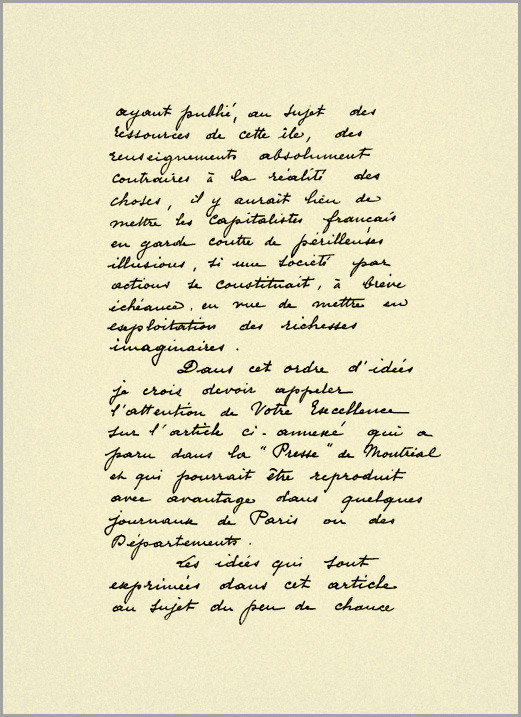 ayant publié, au sujet des
ressources de cette île, des
renseignements absolument
contraires à la réalité des
choses, il y aurait lieu de
mettre les capitalistes français
en garde contre de périlleuses
illusions, si une société par
actions se constituait, à brève
échéance, en vue de mettre en
exploitation des richesses
imaginaires.
Dans cet ordre d'idées
je crois devoir appeler
l'attention de Votre Excellence
sur l'article ci-annexé qui a
paru dans la "Presse" de Montréal
et qui pourrait être reproduit
avec avantage dans quelques
journaux de Paris ou des
Départements.
Les idées qui sont
exprimées dans cet article
au sujet du peu de chance